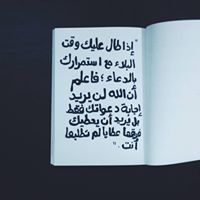 "إذا طال عليك وقت
البلاء مع استمرارك
بالدعاء ؛ فاعلم
أن الله لن يريد
إجابة دعواتك فقط
بل يريد أن يعطيك
فوقها عطايا لم تطلبها
أنت . "